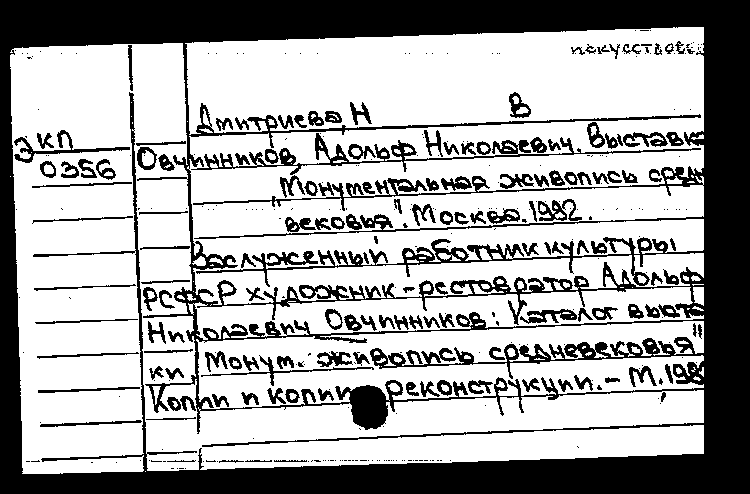 искусствовед
Дмитриева, Н В
Э КП
0356 Овчинников, Адольф Николаевич. Выставка
"Монументальная живопись средн
вековья". Москва. 1982.
Заслуженный работник культуры
РСФСР художник-реставратор Адольф
Николаевич Овчинников: Каталог выста
ки „Монум. живопись средневековья"
Копии и копии реконструкции. - М., 198